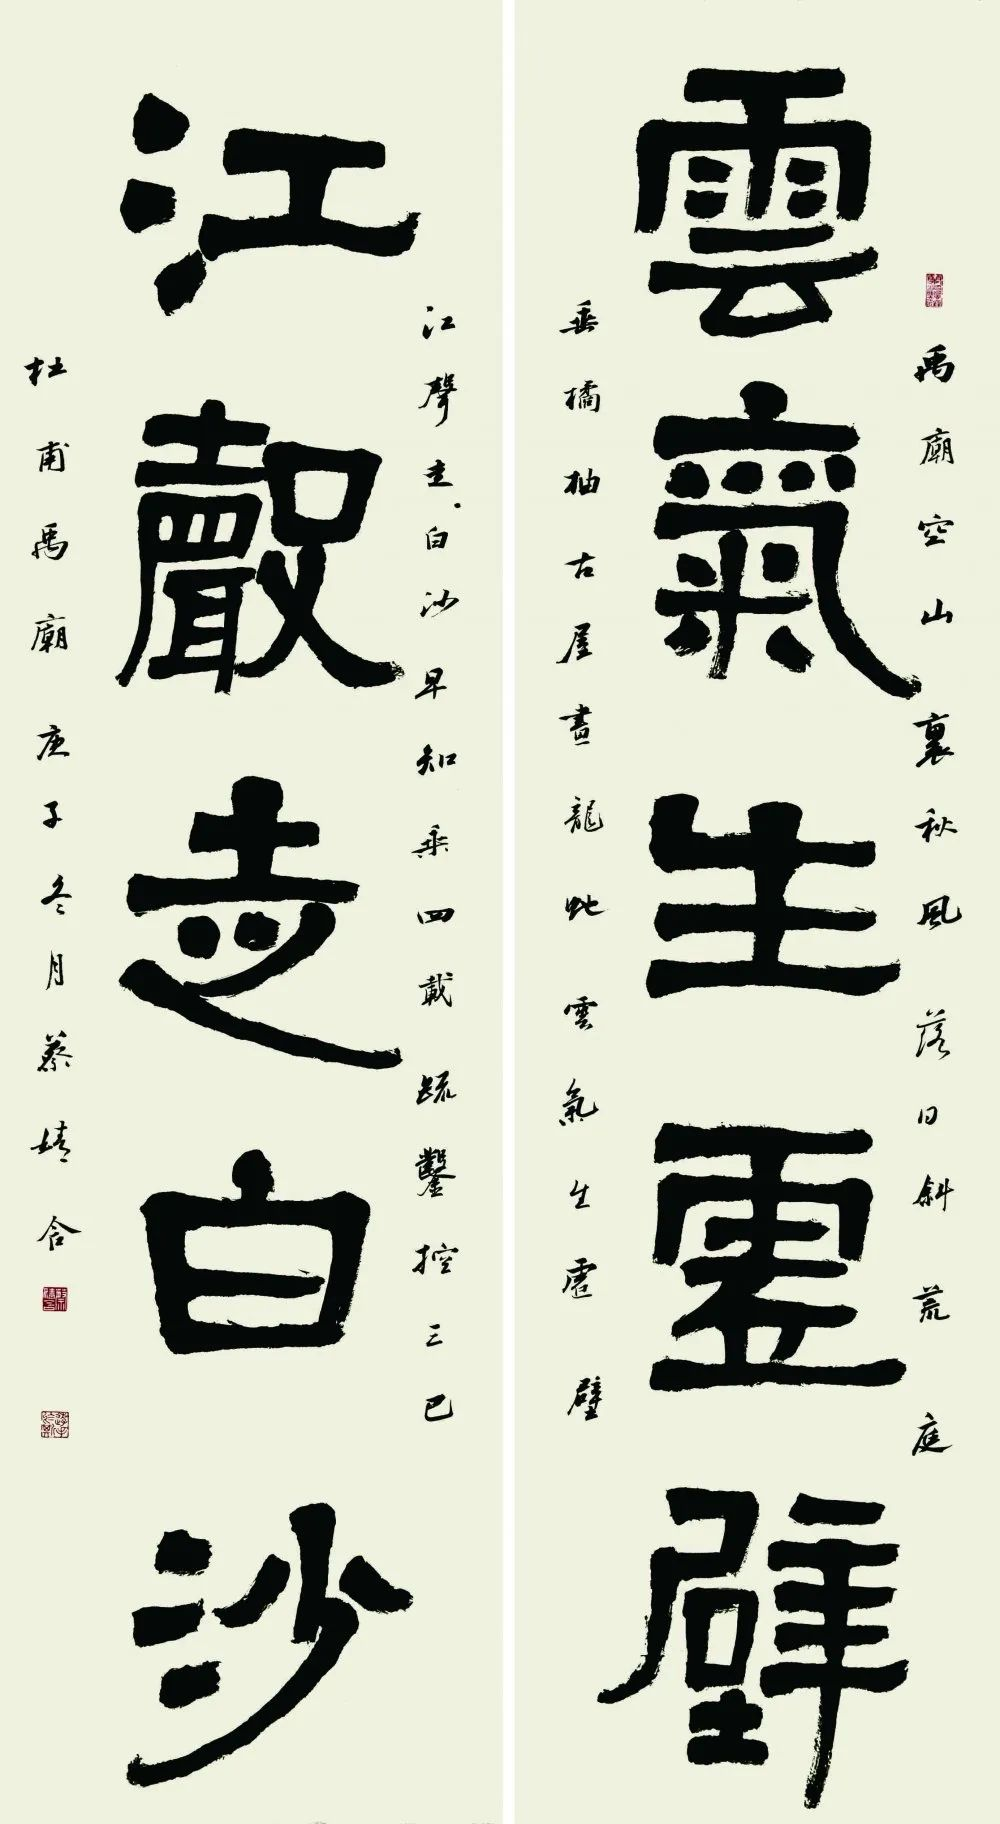 禹廟空山裏秋風落日斜荒庭
雲氣生虛壁
垂橘柚古屋畫龍虵雲氣生虛壁
江聲走白沙早知乘四載疏鑿控三巴
江聲走白沙
杜甫禹廟庚子冬月蔡婧合